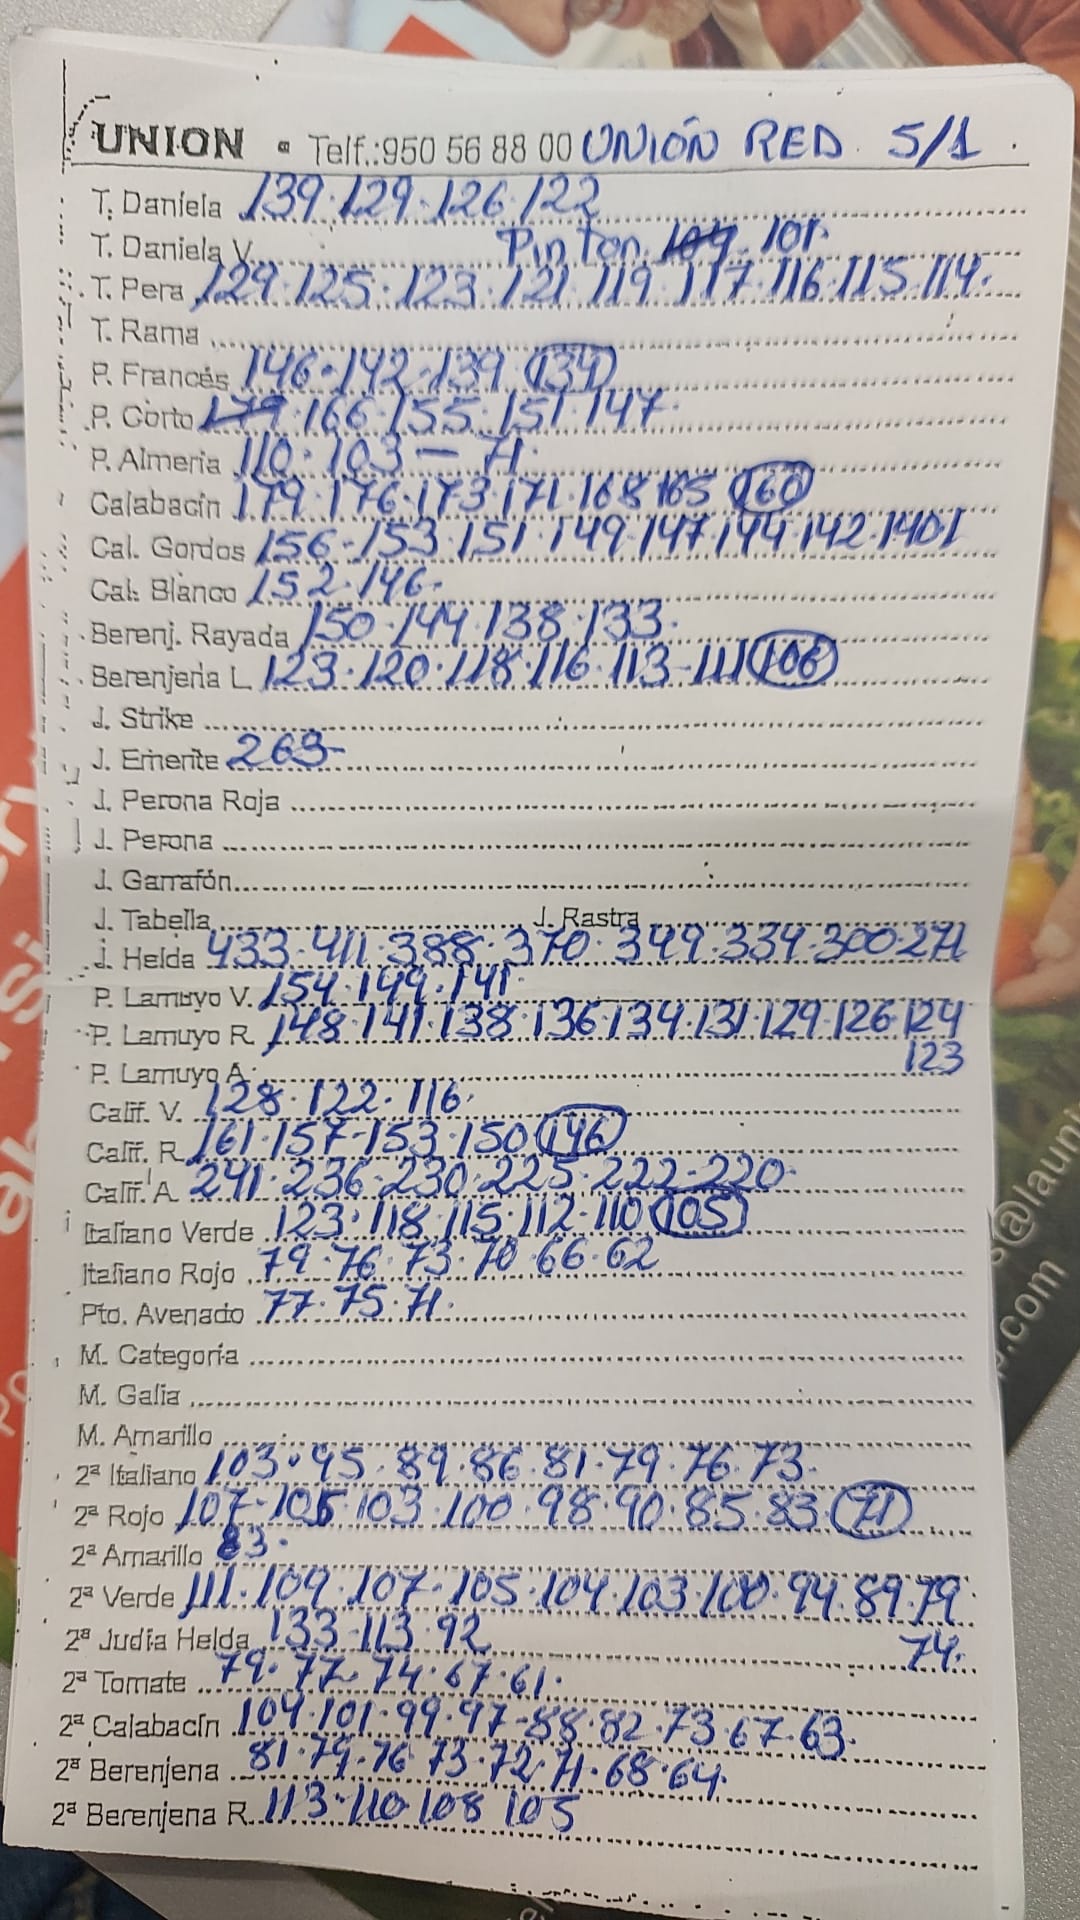 UNION - Telf.:950 56 88 00 UNIÓN RED. 5/1.
T. Daniela 139.129.126.122
T. Daniela V. Pinton 109 101.
T. Pera 129.125.123.121.119.117.116.115.114.
T. Rama
P. Francés 146.142.139 134
P. Corto 179.166.155.151.147.
P. Almeria 110.103-71.
Calabacín 179.176.173.171.168.165 160
Cal. Gordos 156-153.151.149.147.144.142.140
Cal. Blanco 152.146.
Berenj. Rayada 150.144.138.133.
Berenjena L. 123.120.118.116.113-111 106
J. Strike
J. Emerite 263-
J. Perona Roja
J. Perona
J. Garrafón
J. Tabella J. Rastra
J. Helda 433.411.388.370.349.334.300.271
P. Lamuyo V. 154.149.141.
P. Lamuyo R. 148.141.138.136.134.131.129.126.124
123
P. Lamuyo A.
Calif. V. 128.122.116.
Calif. R. 161.157-153.150 146
Calif. A. 241.236.230.225.222-220.
Italiano Verde 123.118.115.112-110 105
Italiano Rojo 79.76.73.70.66.62
Pto. Avenado 77.75.71.
M. Categoria
M. Galia
M. Amarillo
2ª Italiano 103.95.89.86.81.79.76.73.
2ª Rojo 107-105.103.100.98.90.85.83 71
2ª Amarillo 83.
2ª Verde 111.109.107.105.104.103.100.94.89.79
74.
2ª Judia Helda 133-113.92
2ª Tomate 79.77.74.67.61.
2ª Calabacín 104.101.99.97-88.82.73.67.63.
2ª Berenjena 81.79.76.73.72.71.68.64.
2ª Berenjena R. 113.110.108 105
.com